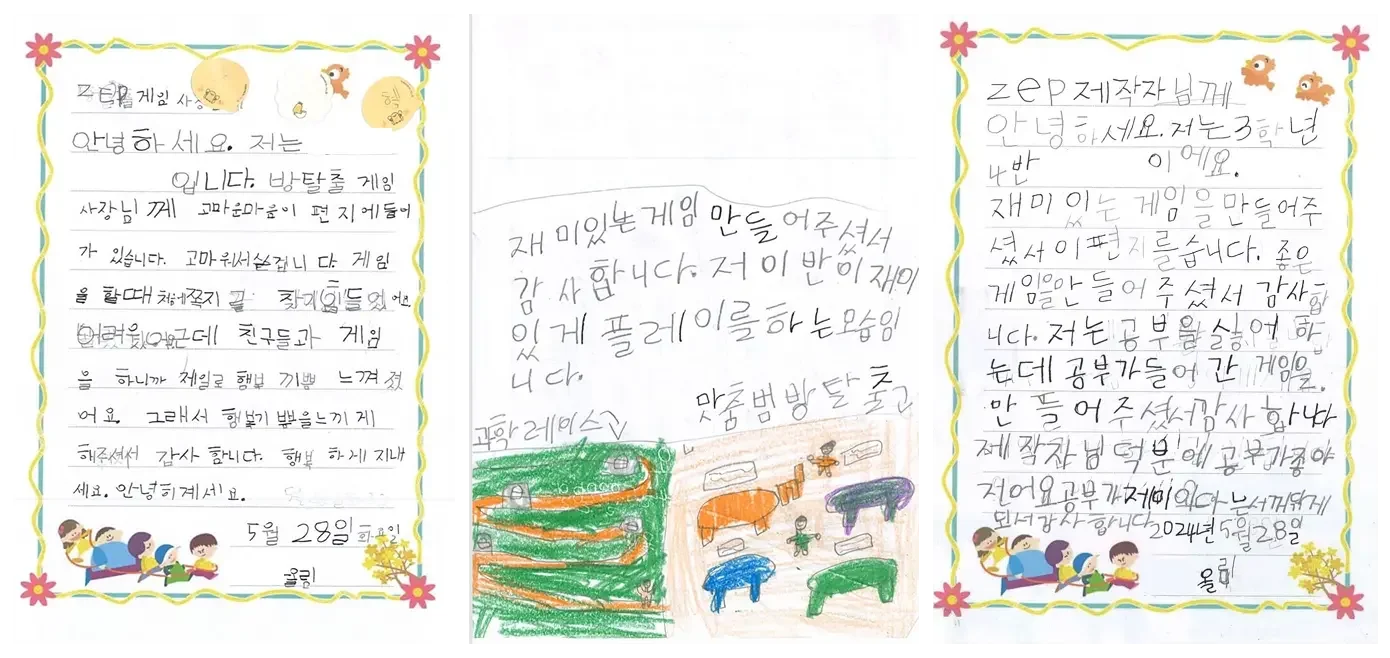 ZEP 게임 사
안녕하세요. 저는
입니다. 방탈출 게임
사장님께 고마운마음이 편지에들어
가 있습니다. 고마워서쓴겁니다. 게임
을 할때 쪽지 찾기 힘들었어요
어려웠 근데 친구들과 게임
을 하니까 제일로 행보 끼쁨 느껴졌
어요. 그래서 행보기쁨을느끼게
해주셔서 감사합니다. 행보하게지내
세요. 안녕히계세요.
5월 28일 화요일
올림
재미있는게임 만들어주셨서
감사합니다. 저이반이재미
있게플레이를하는모습임
니다.
맞춤범방탈출
과학레이스
zep제작자님께
안녕하세요. 저는3학년
4반 이에요.
재미있는 게임을만들어주
셨서이편지를습니다. 좋은
게임을만들어주셨서 감사합
니다. 저는공부을실어하
는데공부가들어간 게임을
만들어주셨서감사합니다
제작자님덕분에공부가좋아
저어요공부가재미
되서감사합니다2024년5월28일
올림